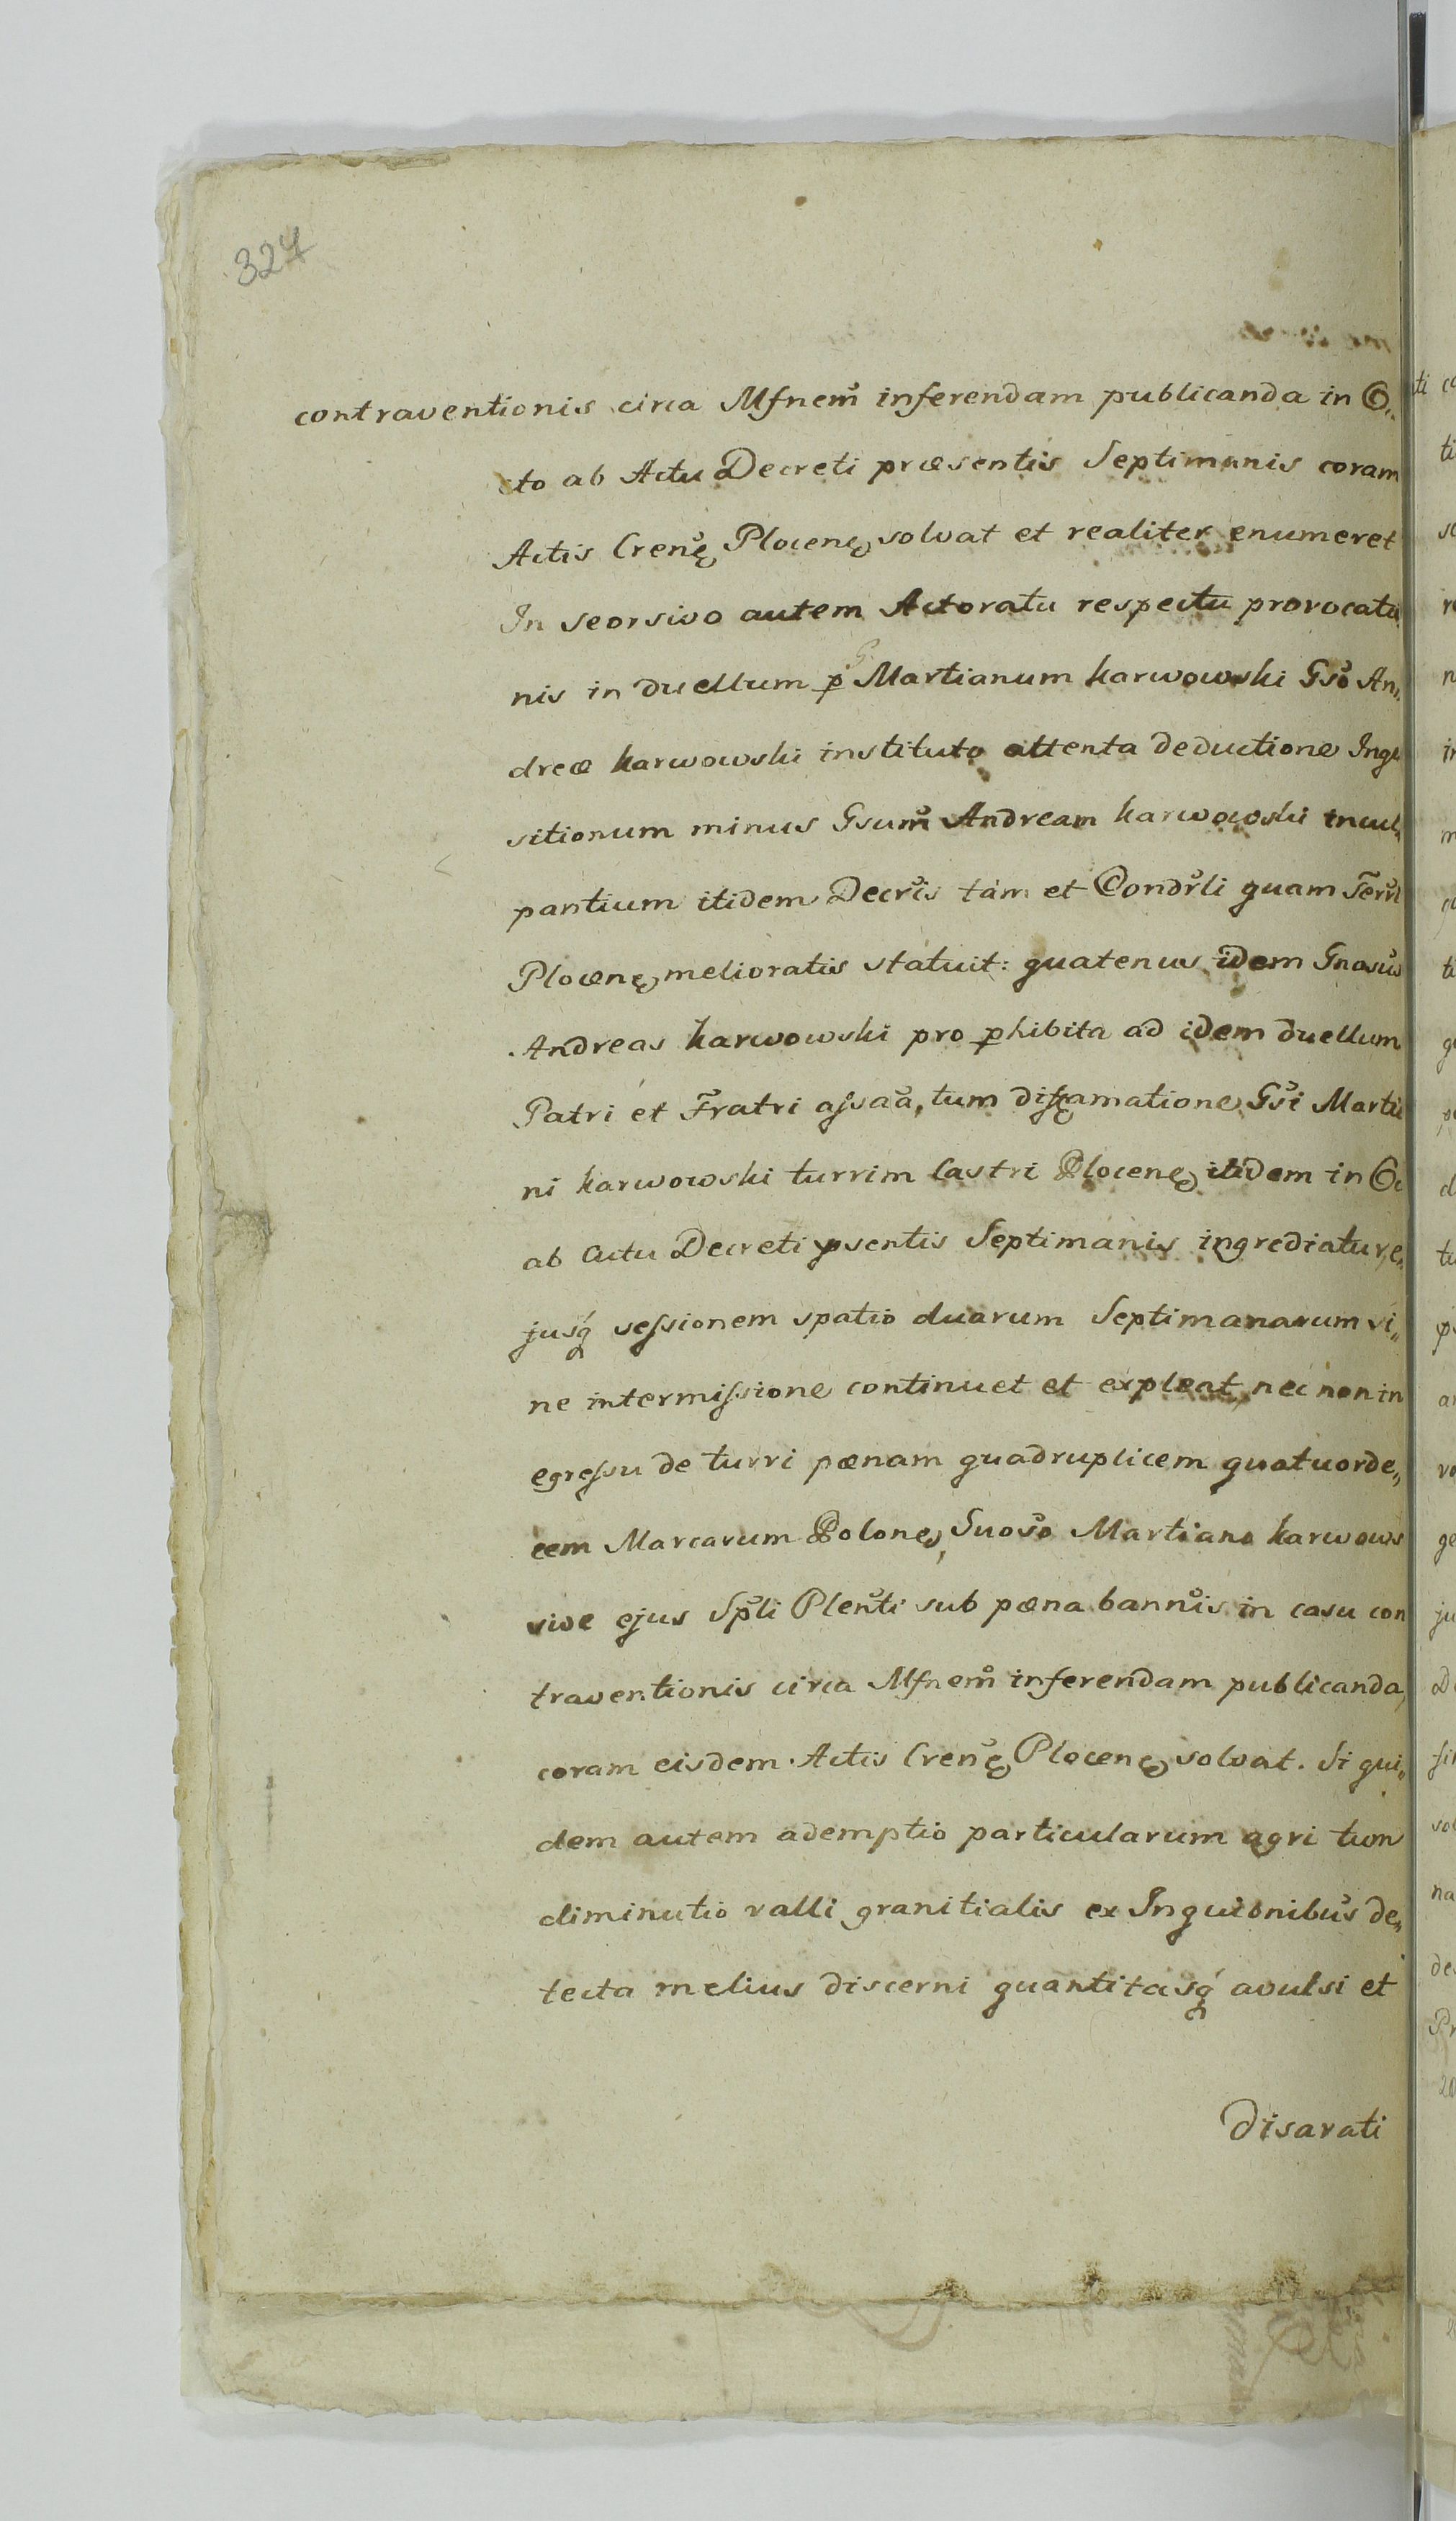 324
contraventionis circa Mſnem̃ inferendam publicanda in O„
cto ab Actu Decreti præsentis Septimanis coram
Actis Cren̄ę Plocenę solvat et realiter enumeret
In seorsivo autem Actoratu respectu provocatio
nis in duellum ꝑ G. Martianum karwowski Gsõ An„
dreæ karwowski instituto attenta deductione Inqui
sitionum minus Gsum̃ Andream karwowski incul„
pantium itidem Decrĩs tàm et Condr̃li quam Terrl
Plocenę melioratis statuit: quatenus idem Gnosus̃
Andreas karwowski pro ꝓhibita ad idem duellum
Patri et Fratri aſsaã, tum diffamatione Gsĩ Martia
ni karwowski turrim Castri Plocenę itidem in Oc
ab Actu Decreti p̄sentis Septimanis ingrediatur, e„
jusq́ seſsionem spatio duarum Septimanarum si„
ne intermiſsione continuet et expleat, nec non in
egreſsu de turri pœnam quadruplicem quatuorde„
cem Marcarum Polonę, Suosõ Martiano karwows
sive ejus Sp̃li Plen̄ti sub pœna bannĩs in casu con
traventionis circa Mſnem̃ inferendam publicanda,
coram eisdem Actis Cren̄ę Plocenę solvat. Si qui„
dem autem ademptio particularum agri tum
diminutio valli granitialis ex Inquiõnibus de„
tecta melius discerni quantitasq́ avulsi et
disarati